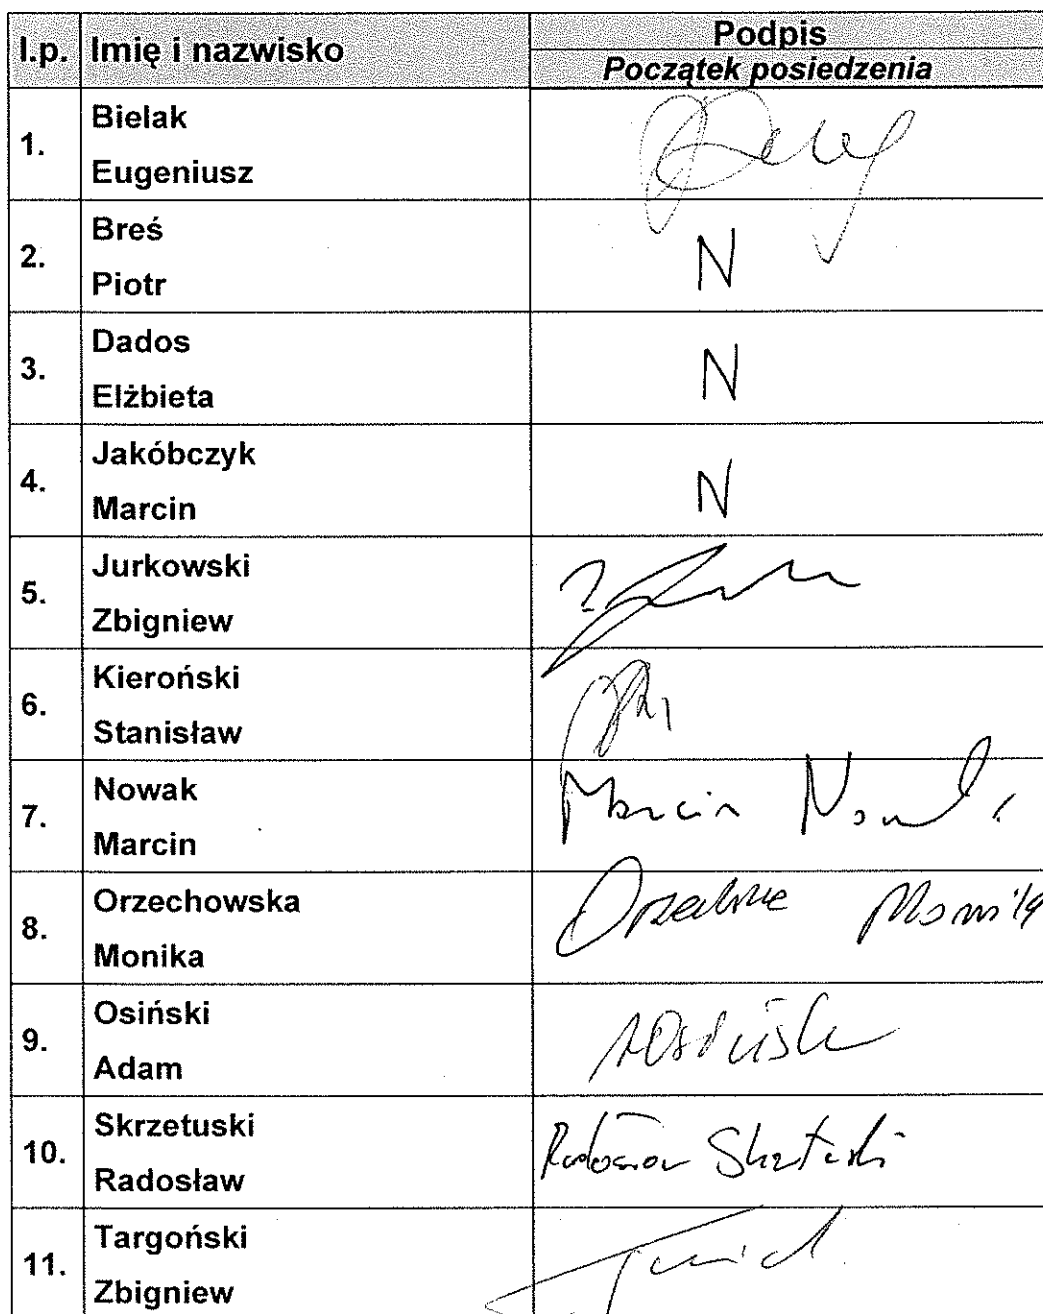 l.p. Imię i nazwisko Podpis
Początek posiedzenia
1. Bielak
Eugeniusz
2. Breś
Piotr
N
3. Dados
Elżbieta
N
4. Jakóbczyk
Marcin
N
5. Jurkowski
Zbigniew
6. Kieroński
Stanisław
7. Nowak
Marcin
Marcin Nowak
8. Orzechowska
Monika
Monika
9. Osiński
Adam
AOsiński
10. Skrzetuski
Radosław
Radosław Skrzetuski
11. Targoński
Zbigniew